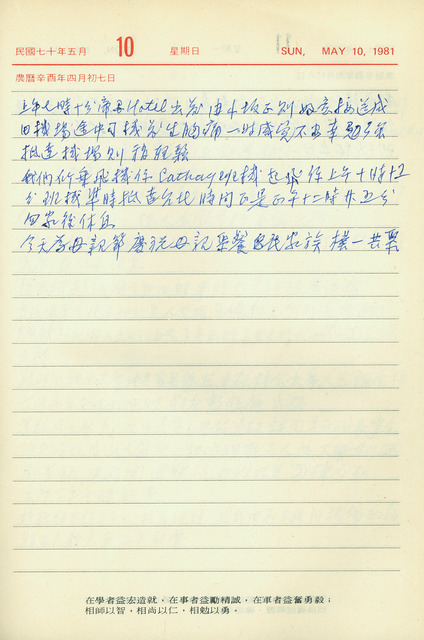 民國七十年五月 10 星期日 SUN, MAY 10, 1981
農曆辛酉年四月初七日
上午七時十分帝國Hotel出發由小坂正則好意接送成
田機場途中可機發生胸痛一時感覺不安幸勉強
抵達機場則稍輕鬆
我們所乘飛機係Cathay班機起飛係上午十時十五
分班機準時抵達台北時間正是正午十二時廿五分
回家後休息
今天為母親節慶祝母親聚餐 家族 一共
在學者益宏造就,在事者益勵精誠,在軍者益奮勇毅;
相師以智,相尚以仁,相勉以勇。